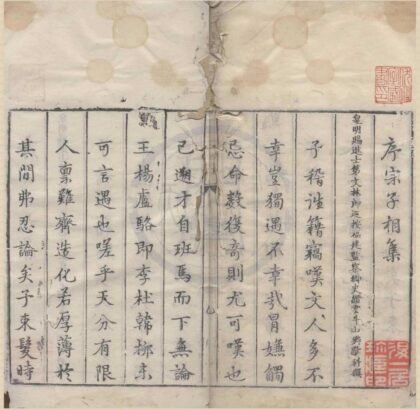 序宗子相集
皇明賜進士第文林郎巡按福建監察御史縉雲斗山樊獻科撰
予稽諸籍竊嘆文人多不
幸豈獨遇不幸哉冒嫌觸
忌命數復奇則尤可嘆也
已遡才自班馬而下無論
王楊盧駱即李杜韓栁未
可言遇也嗟乎天分有限
人稟難齊造化若厚薄於
其間弗忍論矣予束髮時